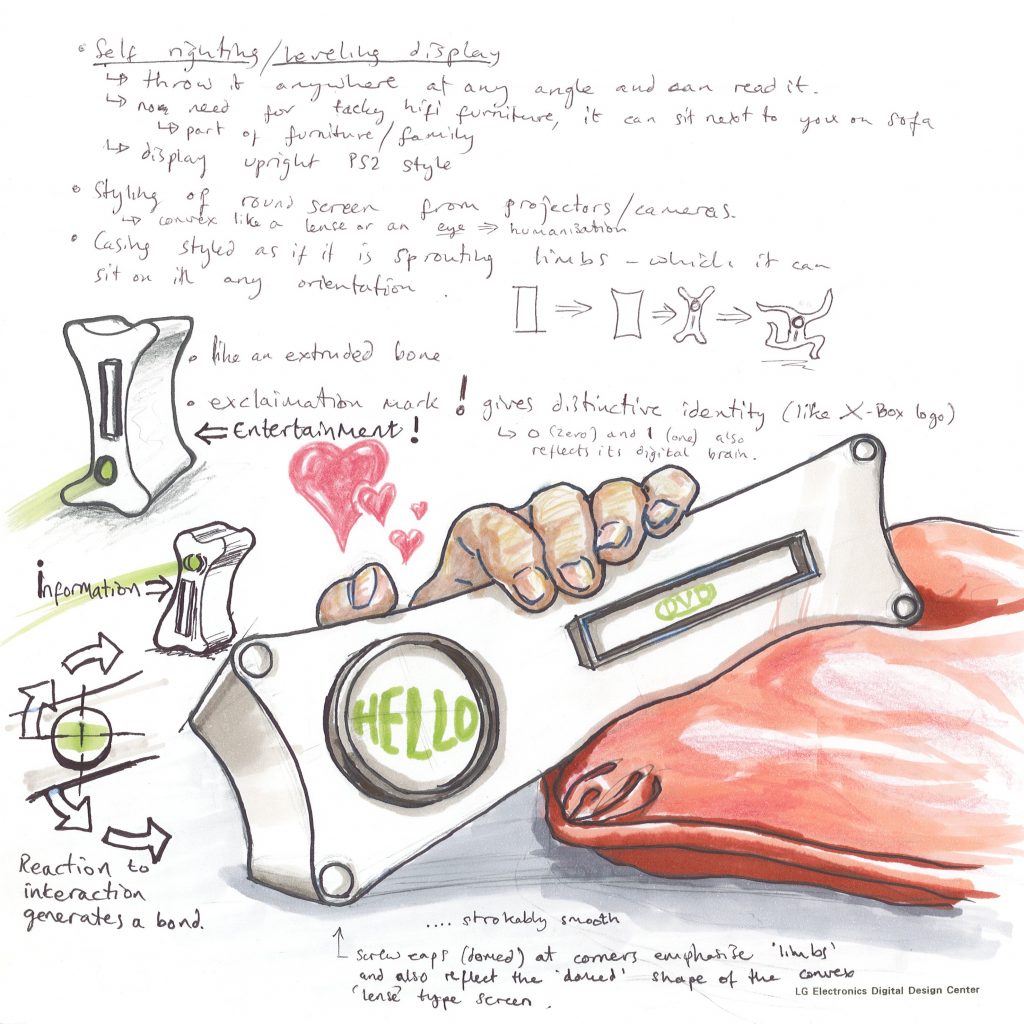 • Self righting/leveling display
↳ throw it anywhere at any angle and can read it.
↳ need for tacky hifi furniture, it can sit next to you on sofa
↳ part of furniture/family
↳ display upright PS2 style
• Styling of round screen from projectors/cameras.
↳ convex like a lense or an eye ⇒ humanisation
• Casing styled as if it is sprouting limbs – which it can
sit on in any orientation.
• like an extruded bone
• exclaimation mark ! gives distinctive identity (like X-Box logo)
↳ 0 (zero) and 1 (one) also
reflects its digital brain.
⇐ Entertainment!
information ⇒
DVD
HELLO
Reaction to
interaction
generates a bond.
.... strokably smooth
↑ screw caps (domed) at corners emphasise 'limbs'
and also reflect the 'domed' shape of the convex
'lense' type screen.
LG Electronics Digital Design Center